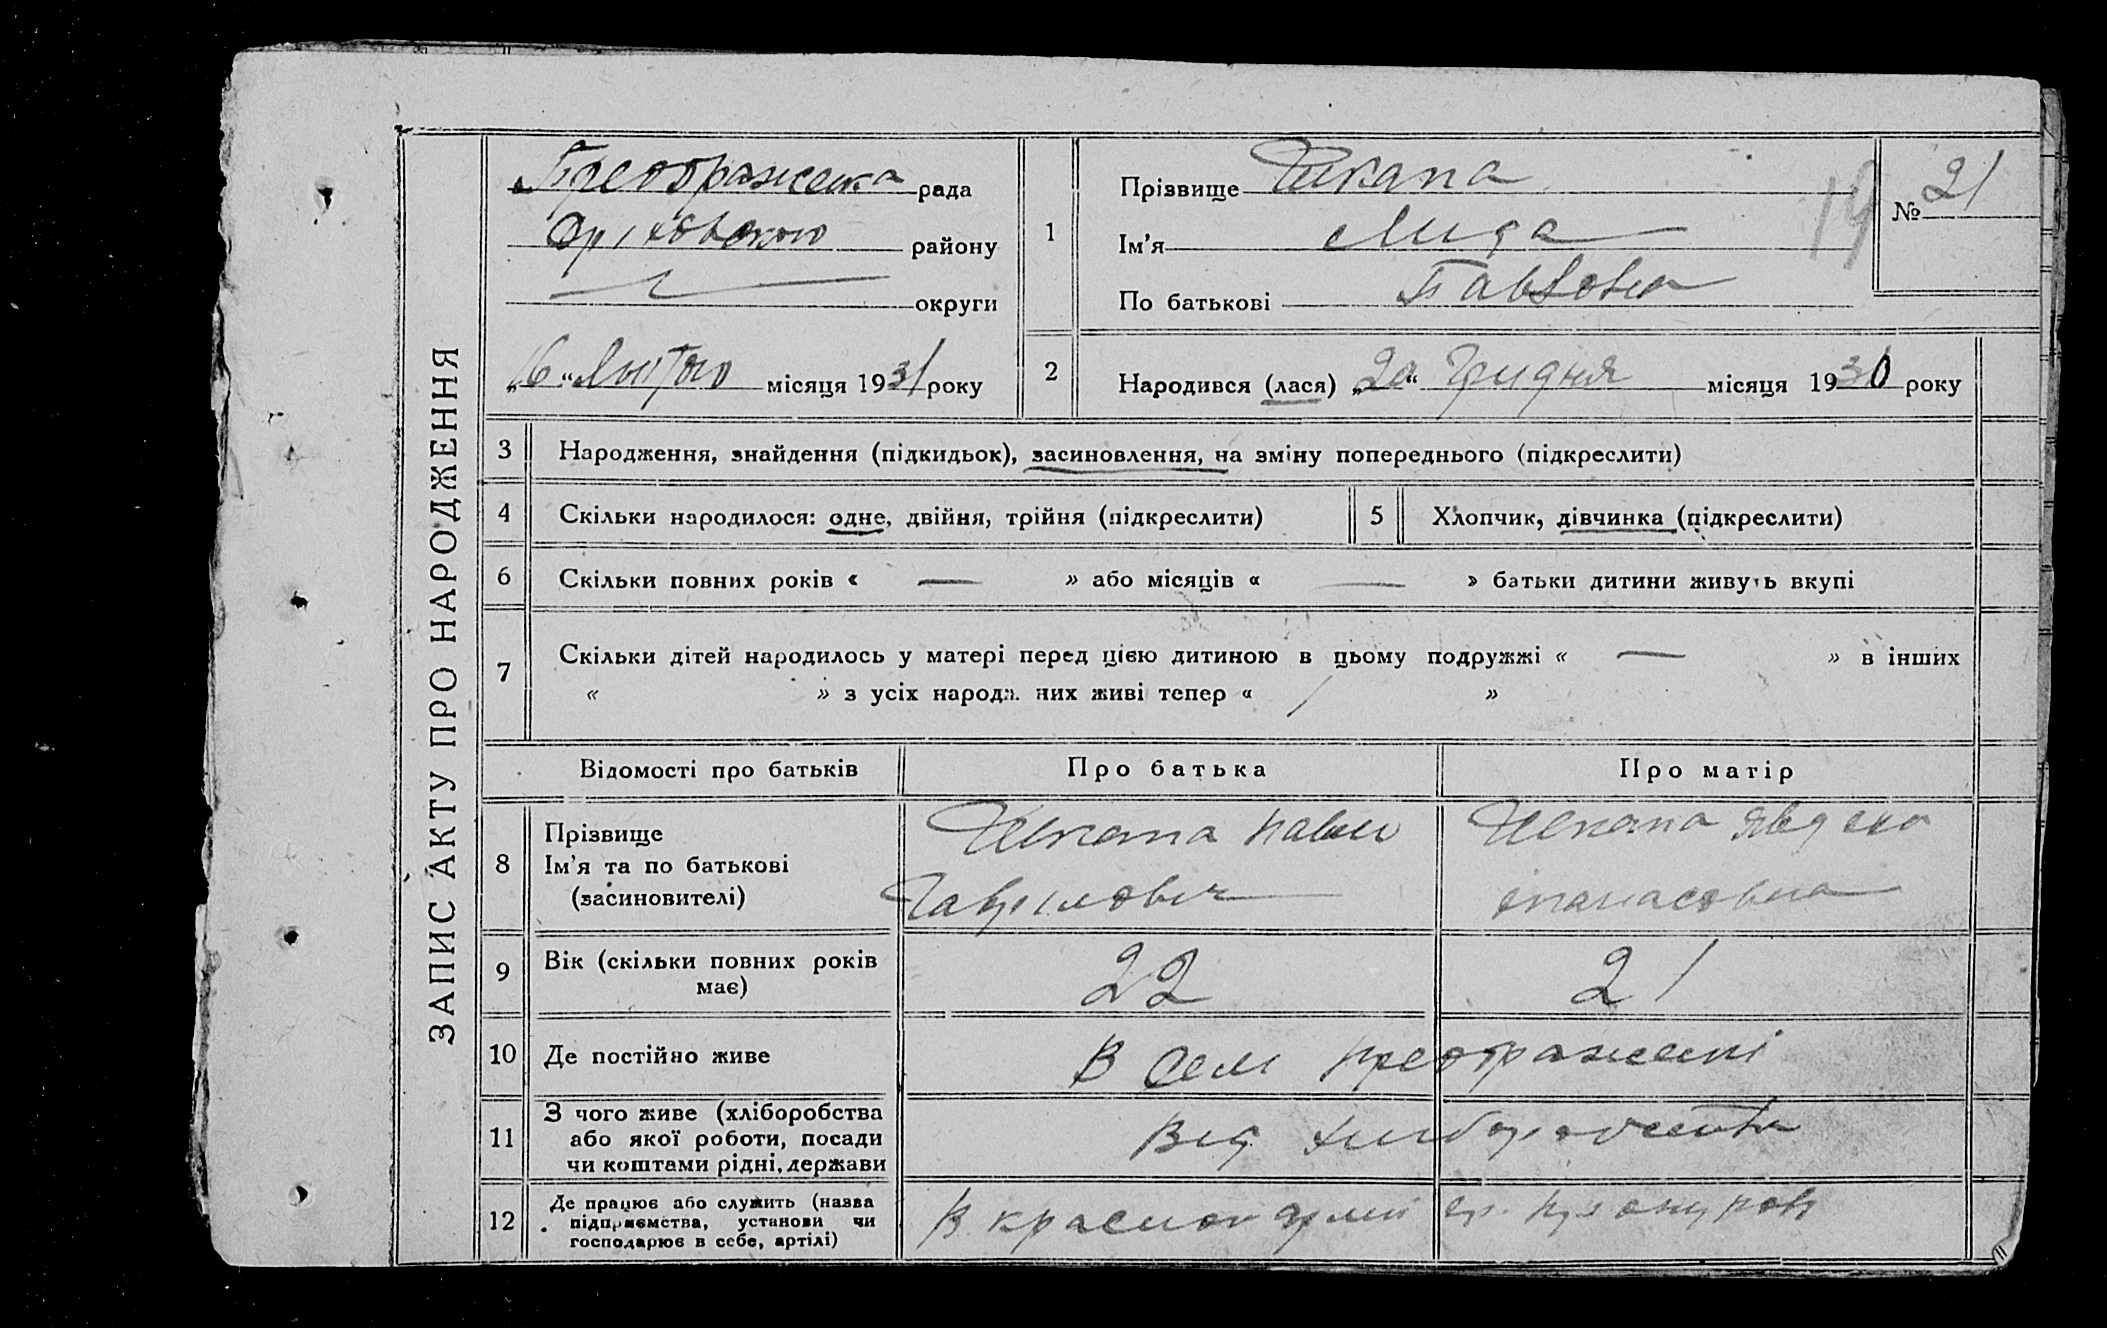 ЗАПИС АКТУ ПРО НАРОДЖЕННЯ
Преображенка рада
Оріховского району
округи
„16“ Лютого місяця 1931 року
1
Прізвище Шкапа
Ім’я Лида
По батькові Павловна
19
№ 21
2
Народився (лася) „20“ Грудня місяця 1930 року
3 Народження, знайдення (підкидьок), засиновлення, на зміну попереднього (підкреслити)
4 Скільки народилося: одне, двійня, трійня (підкреслити)
5 Хлопчик, дівчинка (підкреслити)
6 Скільки повних років « — » або місяців « — » батьки дитини живуть вкупі
7 Скільки дітей народилось у матері перед цією дитиною в цьому подружжі « — » в інших
« » з усіх народж. них живі тепер « / »
Відомості про батьків Про батька Про матір
8 Прізвище
Ім’я та по батькові
(засиновителі)
Шкапа Павло
Гаврилович
Шкапа Явдоха
опанасовна
9 Вік (скільки повних років
має)
22 21
10 Де постійно живе
В селі Преображенкі
11 З чого живе (хліборобства
або якої роботи, посади
чи коштами рідні, держави
Від хлиборобства
12 Де працює або служить (назва
підприємства, установи чи
господарює в себе, артілі)
В красной армії